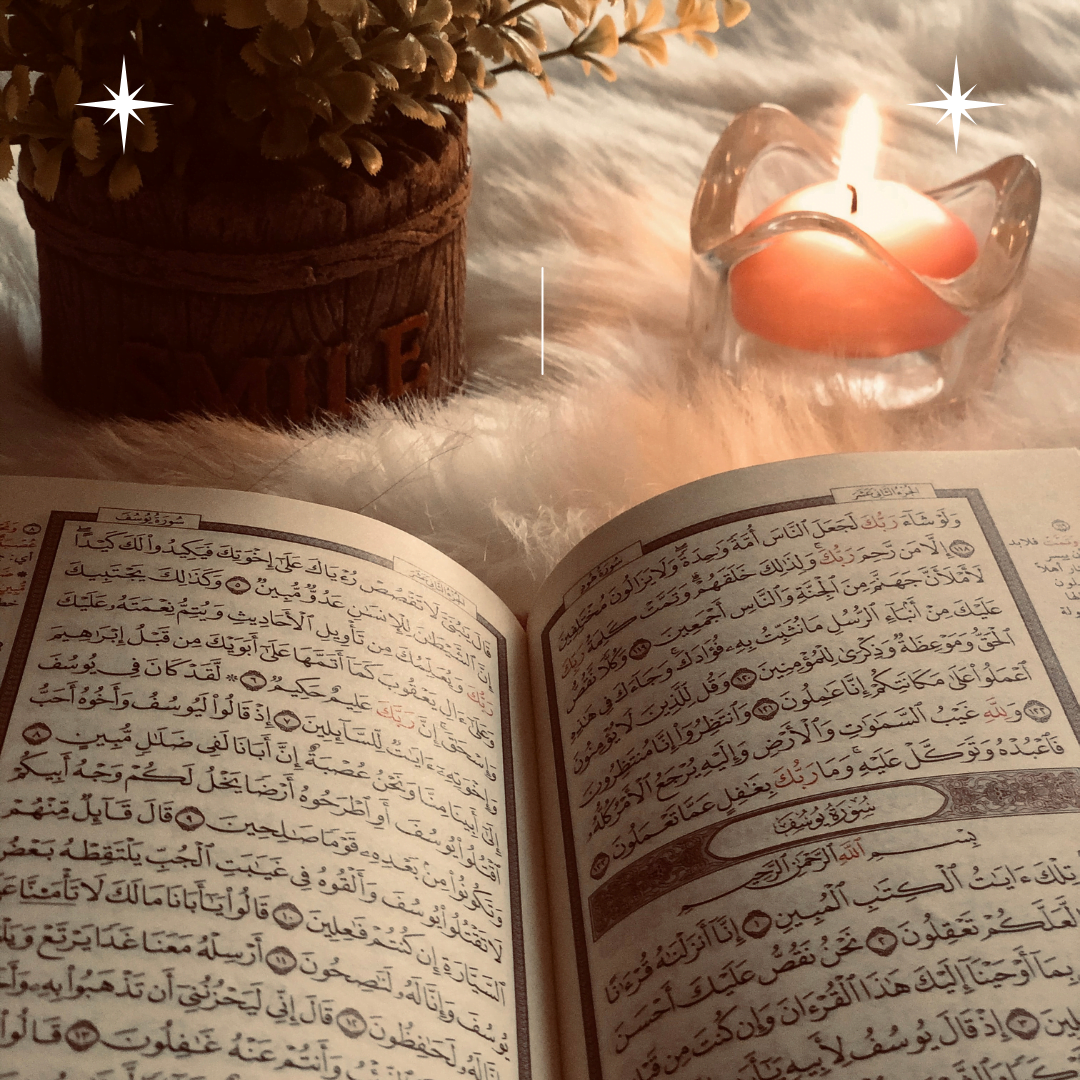 SMILE
الجزء الثاني عشر
سورة هود
وَلَوْ شَآءَ رَبُّكَ لَجَعَلَ ٱلنَّاسَ أُمَّةً وَٰحِدَةً ۖ وَلَا يَزَالُونَ مُخْتَلِفِينَ
١١٨ إِلَّا مَن رَّحِمَ رَبُّكَ ۚ وَلِذَٰلِكَ خَلَقَهُمْ ۗ وَتَمَّتْ كَلِمَةُ رَبِّكَ
لَأَمْلَأَنَّ جَهَنَّمَ مِنَ ٱلْجِنَّةِ وَٱلنَّاسِ أَجْمَعِينَ ١١٩ وَكُلًّا نَّقُصُّ
عَلَيْكَ مِنْ أَنۢبَآءِ ٱلرُّسُلِ مَا نُثَبِّتُ بِهِۦ فُؤَادَكَ ۚ وَجَآءَكَ فِى هَٰذِهِ
ٱلْحَقُّ وَمَوْعِظَةٌ وَذِكْرَىٰ لِلْمُؤْمِنِينَ ١٢٠ وَقُل لِّلَّذِينَ لَا يُؤْمِنُونَ
ٱعْمَلُوا۟ عَلَىٰ مَكَانَتِكُمْ إِنَّا عَٰمِلُونَ ١٢١ وَٱنتَظِرُوٓا۟ إِنَّا مُنتَظِرُونَ
١٢٢ وَلِلَّهِ غَيْبُ ٱلسَّمَٰوَٰتِ وَٱلْأَرْضِ وَإِلَيْهِ يُرْجَعُ ٱلْأَمْرُ كُلُّهُۥ
فَٱعْبُدْهُ وَتَوَكَّلْ عَلَيْهِ ۚ وَمَا رَبُّكَ بِغَٰفِلٍ عَمَّا تَعْمَلُونَ ١٢٣
سُورَةُ يُوسُفَ
بِسْمِ ٱللَّهِ ٱلرَّحْمَٰنِ ٱلرَّحِيمِ
تِلْكَ ءَايَٰتُ ٱلْكِتَٰبِ ٱلْمُبِينِ ١ إِنَّآ أَنزَلْنَٰهُ قُرْءَٰنًا
لَّعَلَّكُمْ تَعْقِلُونَ ٢ نَحْنُ نَقُصُّ عَلَيْكَ أَحْسَنَ
بِمَآ أَوْحَيْنَآ إِلَيْكَ هَٰذَا ٱلْقُرْءَانَ وَإِن كُنتَ مِن قَبْلِهِۦ
٣ إِذْ قَالَ يُوسُفُ لِأَبِيهِ
سورة يوسف
الجزء الثاني عشر
قَالَ يَٰبُنَىَّ لَا تَقْصُصْ رُءْيَاكَ عَلَىٰٓ إِخْوَتِكَ فَيَكِيدُوا۟ لَكَ كَيْدًا ۖ
إِنَّ ٱلشَّيْطَٰنَ لِلْإِنسَٰنِ عَدُوٌّ مُّبِينٌ ٥ وَكَذَٰلِكَ يَجْتَبِيكَ
رَبُّكَ وَيُعَلِّمُكَ مِن تَأْوِيلِ ٱلْأَحَادِيثِ وَيُتِمُّ نِعْمَتَهُۥ عَلَيْكَ
وَعَلَىٰٓ ءَالِ يَعْقُوبَ كَمَآ أَتَمَّهَا عَلَىٰٓ أَبَوَيْكَ مِن قَبْلُ إِبْرَٰهِيمَ
وَإِسْحَٰقَ ۚ إِنَّ رَبَّكَ عَلِيمٌ حَكِيمٌ ٦ ۞ لَّقَدْ كَانَ فِى يُوسُفَ
وَإِخْوَتِهِۦٓ ءَايَٰتٌ لِّلسَّآئِلِينَ ٧ إِذْ قَالُوا۟ لَيُوسُفُ وَأَخُوهُ أَحَبُّ
إِلَىٰٓ أَبِينَا مِنَّا وَنَحْنُ عُصْبَةٌ إِنَّ أَبَانَا لَفِى ضَلَٰلٍ مُّبِينٍ ٨
ٱقْتُلُوا۟ يُوسُفَ أَوِ ٱطْرَحُوهُ أَرْضًا يَخْلُ لَكُمْ وَجْهُ أَبِيكُمْ
وَتَكُونُوا۟ مِنۢ بَعْدِهِۦ قَوْمًا صَٰلِحِينَ ٩ قَالَ قَآئِلٌ مِّنْهُمْ
لَا تَقْتُلُوا۟ يُوسُفَ وَأَلْقُوهُ فِى غَيَٰبَتِ ٱلْجُبِّ يَلْتَقِطْهُ بَعْضُ
ٱلسَّيَّارَةِ إِن كُنتُمْ فَٰعِلِينَ ١٠ قَالُوا۟ يَٰٓأَبَانَا مَا لَكَ لَا تَأْمَ۫نَّا
يُوسُفَ وَإِنَّا لَهُۥ لَنَٰصِحُونَ ١١ أَرْسِلْهُ مَعَنَا غَدًا يَرْتَعْ
وَإِنَّا لَهُۥ لَحَٰفِظُونَ ١٢ قَالَ إِنِّى لَيَحْزُنُنِىٓ أَن تَذْهَبُوا۟ بِهِۦ
وَأَنتُمْ عَنْهُ غَٰفِلُونَ ١٣ قَالُوا۟